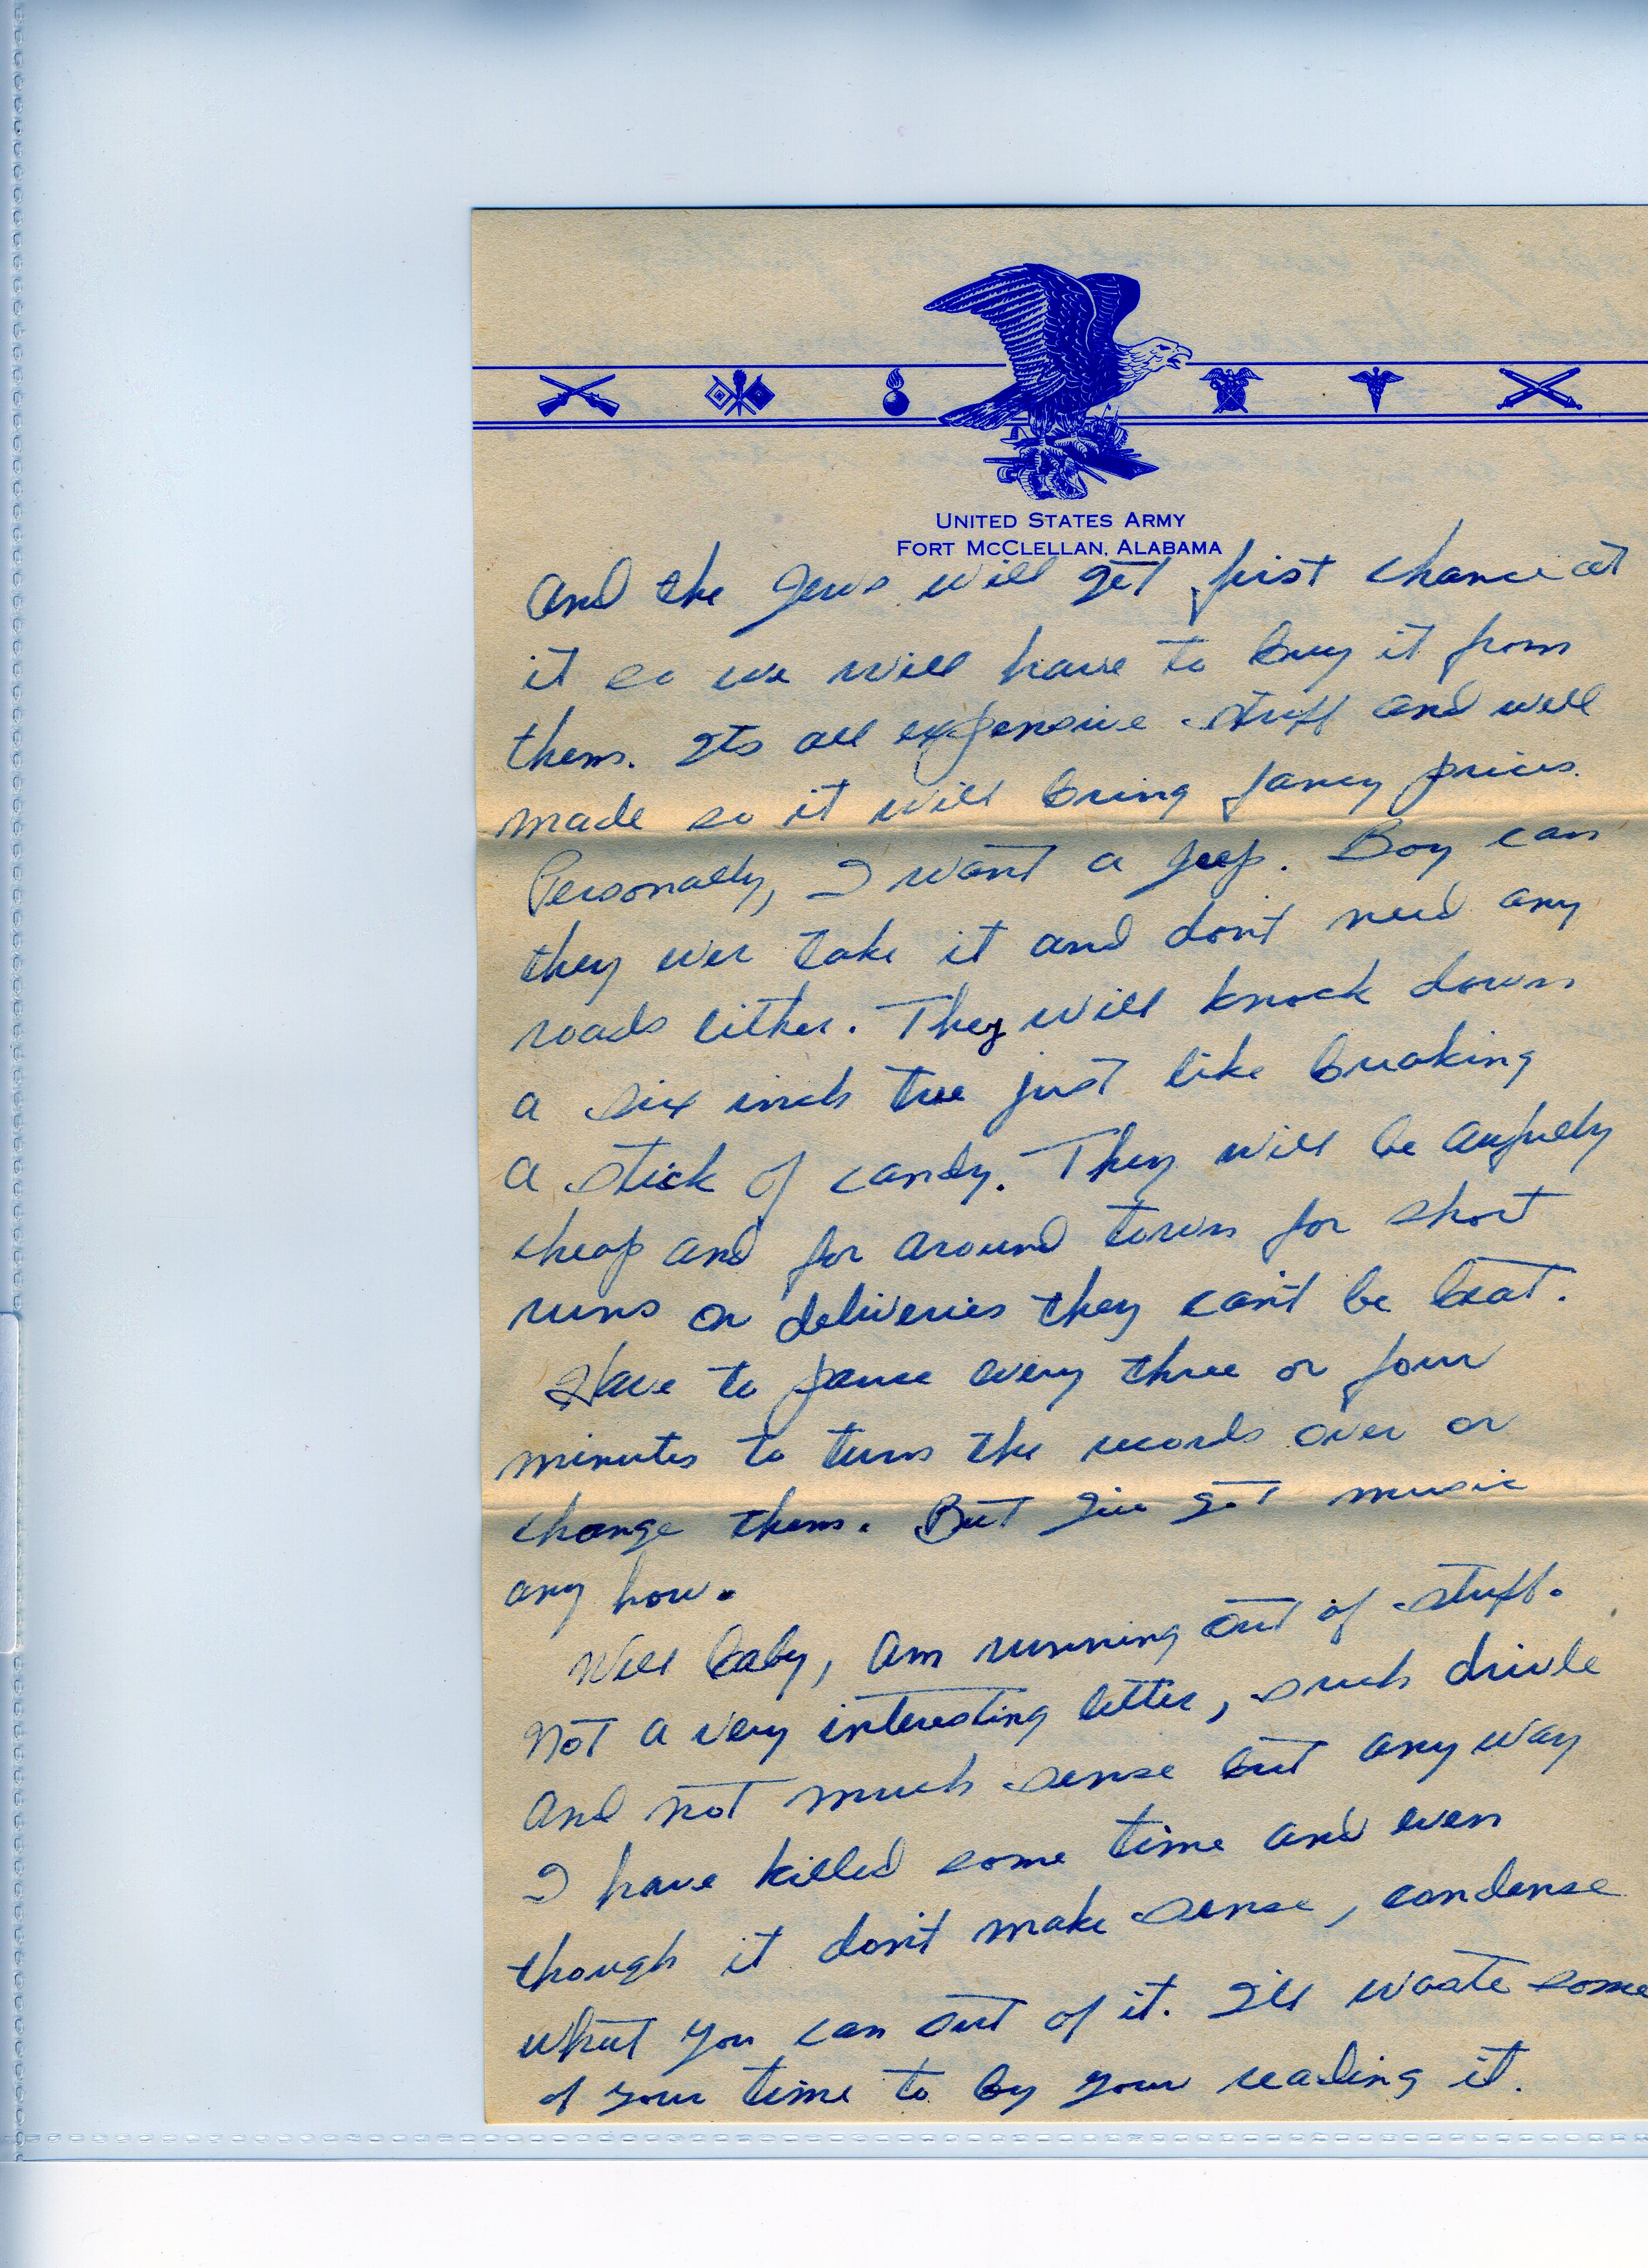 UNITED STATES ARMY
FORT MCCLELLAN, ALABAMA
and the Jews will get first chance at
it so we will have to buy it from
them. Its all expensive stuff and well
made so it will bring fancy prices.
Personally, I want a jeep. Boy can
they ever take it and don't need any
roads either. They will knock down
a six inch tree just like breaking
a stick of candy. They will be awfully
cheap and for around town for short
runs or deliveries they can't be beat.
Have to pause every three or four
minutes to turn the records over or
change them. But I've got music
any how.
Well baby, am running out of stuff.
Not a very interesting letter, such drivle
and not much sense but any way
I have killed some time and even
though it don't make sense, condense
what you can out of it. I'll waste some
of your time to by your reading it.